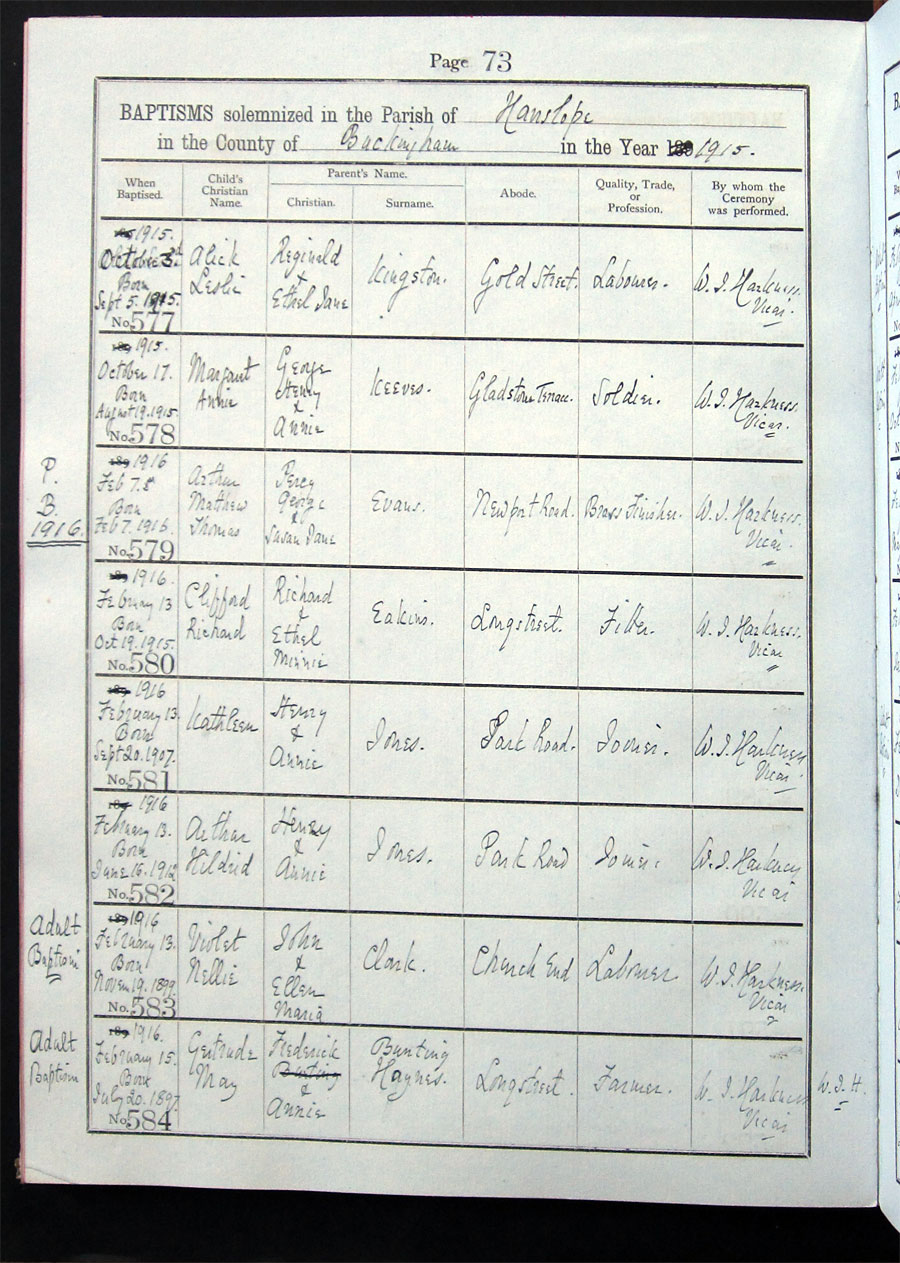 Page 73
BAPTISMS solemnized in the Parish of Hanslope
in the County of Buckingham in the Year 189 1915.
When Baptised.
Child's Christian Name.
Parent's Name.
Christian.
Surname.
Abode.
Quality, Trade, or Profession.
By whom the Ceremony was performed.
1915.
October 3rd
Born
Sept 5. 1915.
No. 577
Alick
Leslie
Reginald
&
Ethel Jane
Kingston.
Gold Street.
Labourer.
W. J. Harkness.
Vicar.
189 1915.
October 17.
Born
August 19. 1915
No. 578
Margaret
Annie
George
Henry
&
Annie
Keeves.
Gladstone Terrace.
Soldier.
W. J. Harkness.
Vicar.
P.
B.
1916.
189 1916
Feb 7.
Born
Feb 7. 1916.
No. 579
Arthur
Matthew
Thomas
Percy
George
&
Susan Jane
Evans.
Newport Road.
Brass Finisher.
W. J. Harkness.
Vicar.
189 1916.
February 13
Born
Oct 19. 1915.
No. 580
Clifford
Richard
Richard
&
Ethel
Minnie
Eakins.
Longstreet.
Fitter.
W. J. Harkness.
Vicar
189 1916
February 13.
Born
Sept 20. 1907.
No. 581
Kathleen
Henry
&
Annie
Jones.
Park Road.
Joiner.
W. J. Harkness
Vicar.
189 1916
February 13.
Born
June 16. 1912
No. 582
Arthur
Hildrid
Henry
&
Annie
Jones.
Park Road
Joiner.
W. J. Harkness
Vicar
Adult
Baptism
189 1916
February 13.
Born
Novem 19. 1899
No. 583
Violet
Nellie
John
&
Ellen
Maria
Clark.
Church End
Labourer
W. J. Harkness.
Vicar
Adult
Baptism
189 1916.
February 15.
Born
July 20. 1897.
No. 584
Gertrude
May
Frederick
Bunting
&
Annie
Bunting
Haynes.
Longstreet.
Farmer.
W. J. Harkness
Vicar
W. J. H.